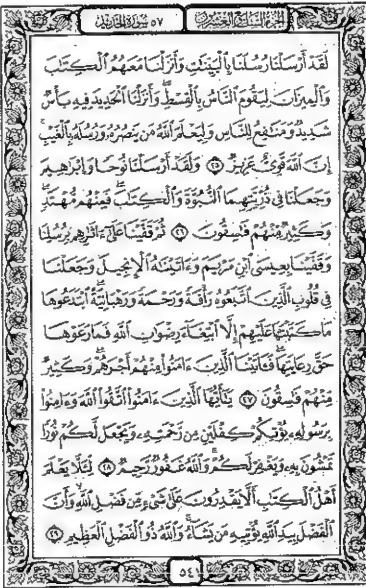 الجزء السابع والعشرون ٥٧ سورة الحديد
لَقَدْ أَرْسَلْنَا رُسُلَنَا بِالْبَيِّنَٰتِ وَأَنزَلْنَا مَعَهُمُ الْكِتَٰبَ
وَالْمِيزَانَ لِيَقُومَ النَّاسُ بِالْقِسْطِ وَأَنزَلْنَا الْحَدِيدَ فِيهِ بَأْسٌ
شَدِيدٌ وَمَنَٰفِعُ لِلنَّاسِ وَلِيَعْلَمَ اللَّهُ مَن يَنصُرُهُ وَرُسُلَهُ بِالْغَيْبِ
إِنَّ اللَّهَ قَوِيٌّ عَزِيزٌ ٢٥ وَلَقَدْ أَرْسَلْنَا نُوحًا وَإِبْرَٰهِيمَ
وَجَعَلْنَا فِي ذُرِّيَّتِهِمَا النُّبُوَّةَ وَالْكِتَٰبَ فَمِنْهُم مُّهْتَدٍ
وَكَثِيرٌ مِّنْهُمْ فَٰسِقُونَ ٢٦ ثُمَّ قَفَّيْنَا عَلَىٰ ءَاثَٰرِهِم بِرُسُلِنَا
وَقَفَّيْنَا بِعِيسَى ابْنِ مَرْيَمَ وَءَاتَيْنَٰهُ الْإِنجِيلَ وَجَعَلْنَا
فِي قُلُوبِ الَّذِينَ اتَّبَعُوهُ رَأْفَةً وَرَحْمَةً وَرَهْبَانِيَّةً ابْتَدَعُوهَا
مَا كَتَبْنَٰهَا عَلَيْهِمْ إِلَّا ابْتِغَاءَ رِضْوَٰنِ اللَّهِ فَمَا رَعَوْهَا
حَقَّ رِعَايَتِهَا فَـَٔاتَيْنَا الَّذِينَ ءَامَنُوا مِنْهُمْ أَجْرَهُمْ وَكَثِيرٌ
مِّنْهُمْ فَٰسِقُونَ ٢٧ يَٰأَيُّهَا الَّذِينَ ءَامَنُوا اتَّقُوا اللَّهَ وَءَامِنُوا
بِرَسُولِهِ يُؤْتِكُمْ كِفْلَيْنِ مِن رَّحْمَتِهِ وَيَجْعَل لَّكُمْ نُورًا
تَمْشُونَ بِهِ وَيَغْفِرْ لَكُمْ وَاللَّهُ غَفُورٌ رَّحِيمٌ ٢٨ لِّئَلَّا يَعْلَمَ
أَهْلُ الْكِتَٰبِ أَلَّا يَقْدِرُونَ عَلَىٰ شَيْءٍ مِّن فَضْلِ اللَّهِ وَأَنَّ
الْفَضْلَ بِيَدِ اللَّهِ يُؤْتِيهِ مَن يَشَاءُ وَاللَّهُ ذُو الْفَضْلِ الْعَظِيمِ ٢٩
٥٤١